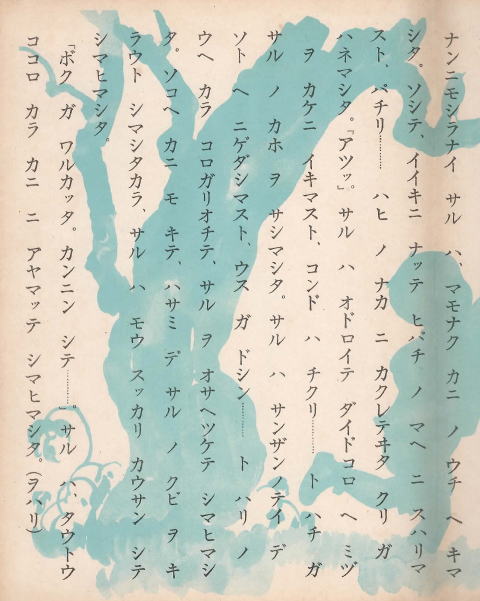 ナンニモシラナイ サル ハ、マモナク カニ ノ ウチ ヘ キマ
シタ。ソシテ、イイキニ ナッテ ヒバチ ノ マヘ ニ スハリマ
スト、パチリ……… ハヒ ノ ナカ ニ カクレテヰタ クリ ガ
ハネマシタ。「アツッ」。サル ハ オドロイテ ダイドコロ ヘ ミヅ
ヲ カケニ イキマスト、コンド ハ チクリ……… ト ハチ ガ
サル ノ カホ ヲ サシマシタ。サル ハ サンザンノテイ デ
ソト ヘ ニゲダシマスト、ウス ガ ドシン……… ト ハリ ノ
ウヘ カラ コロガリオチテ、サル ヲ オサヘツケテ シマヒマシ
タ。ソコヘ カニ モ キテ、ハサミ デ サル ノ クビ ヲ キ
ラウト シマシタカラ、サル ハ モウ スッカリ カウサン シテ
シマヒマシタ。
「ボク ガ ワルカッタ。カンニン シテ………」サル ハ、タウトウ
ココロ カラ カニ ニ アヤマッテ シマヒマシタ。(ヲハリ)